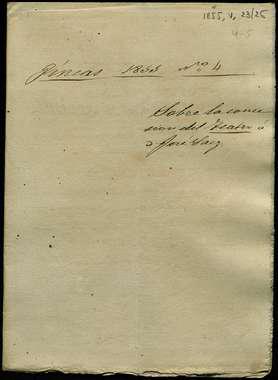 1855, V, 23/25
4-5
Fincas 1855 Nº 4
Sobre la conce
sion del Teatro á
D José Saez